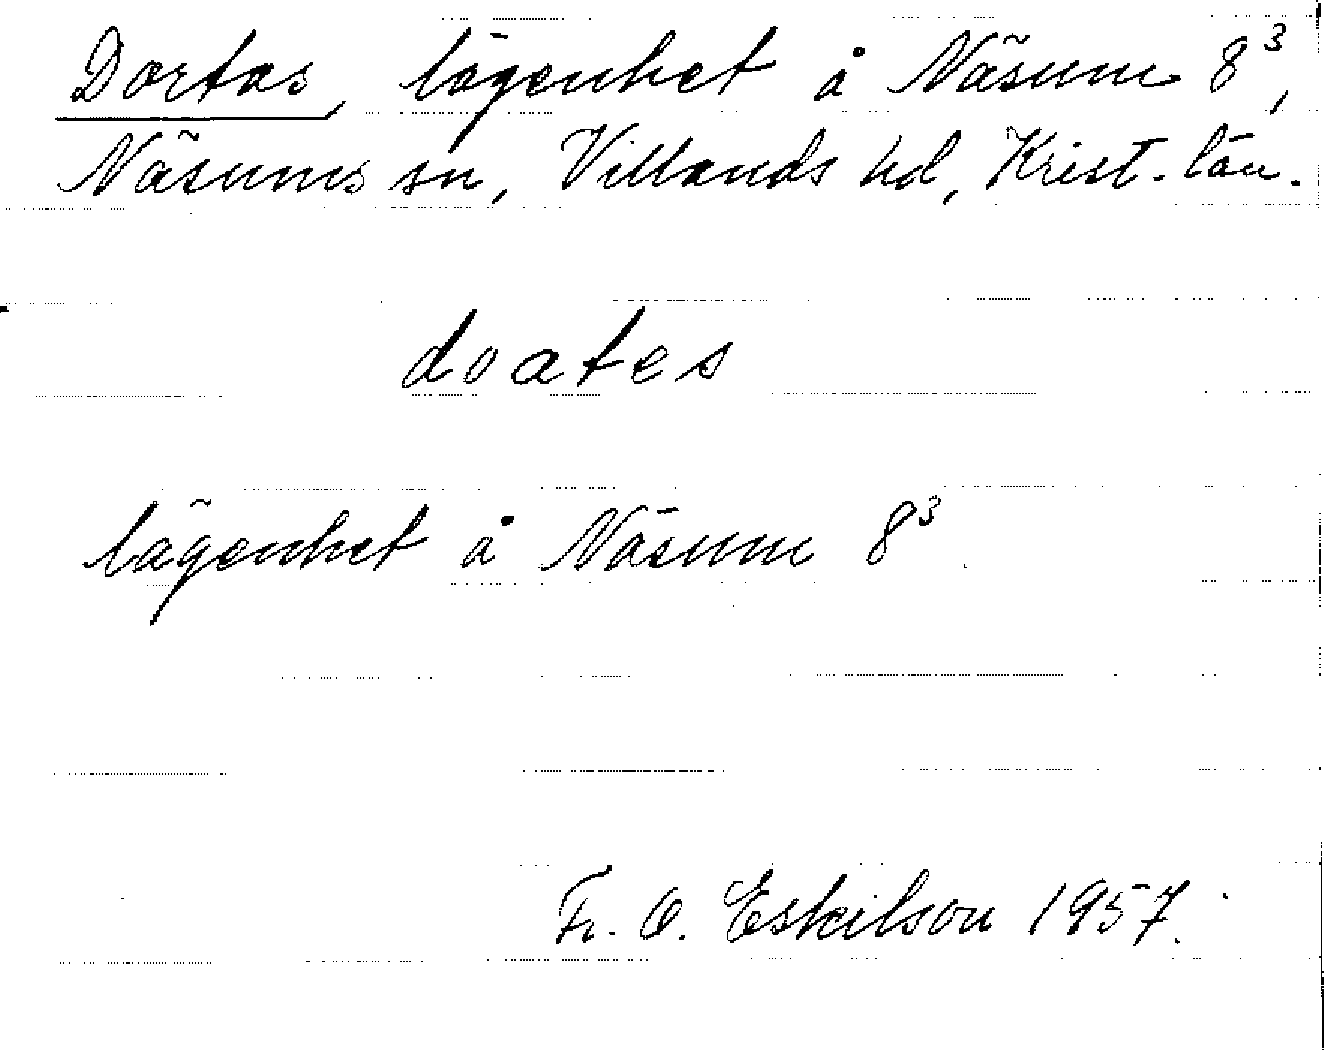 Dortas, lägenhet å Näsum 8³,
Näsums sn, Villands hd, Krist. län.
doates
lägenhet å Näsum 8³
Fr. O. Eskilson 1957.